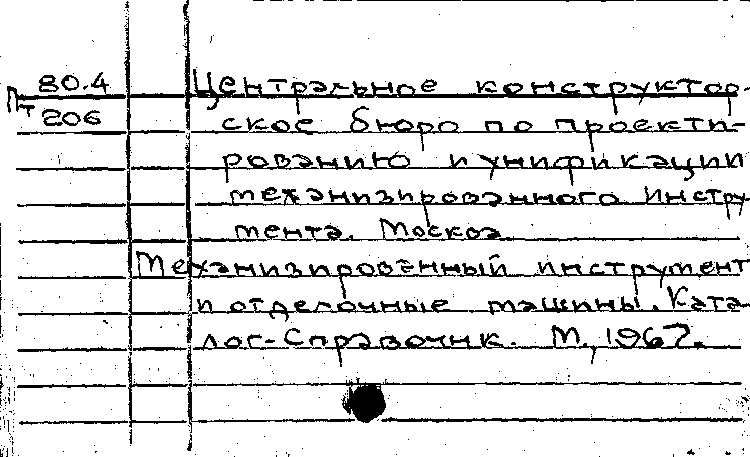 80.4 Центральное конструктор-
Пт 206 ское бюро по проекти-
рованию и унификации
механизированного инстру
мента. Москва
Механизированный инструмент
и отделочные машины. Ката-
лог-Справочник. М., 1967.